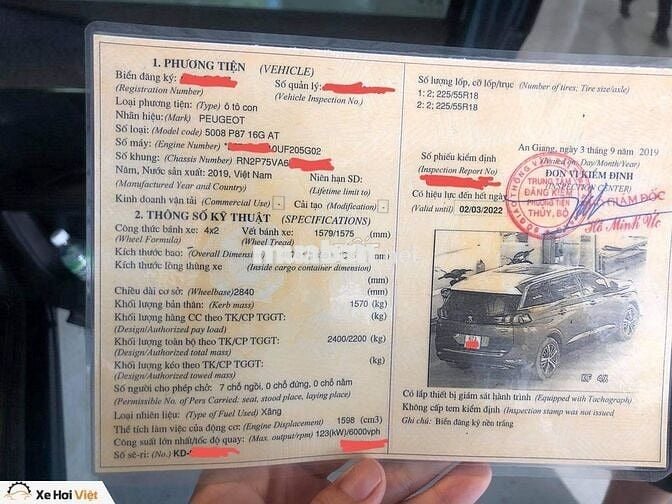 1. PHƯƠNG TIỆN (VEHICLE)
Biển đăng ký:
(Registration Number)
Số quản lý:
(Vehicle Inspection No.)
Loại phương tiện: (Type) ô tô con
Nhãn hiệu: (Mark) PEUGEOT
Số loại: (Model code) 5008 P87 16G AT
Số máy: (Engine Number) 0UF205G02
Số khung: (Chassis Number) RN2P75VA6
Năm, Nước sản xuất: 2019, Việt Nam
(Manufactured Year and Country)
Niên hạn SD:
(Lifetime limit to)
Kinh doanh vận tải (Commercial Use) - Cải tạo (Modification) -
2. THÔNG SỐ KỸ THUẬT (SPECIFICATIONS)
Công thức bánh xe: 4x2 Vết bánh xe: 1579/1575 (mm)
(Wheel Formula) (Wheel Tread)
Kích thước bao: (Overall Dimension (mm)
Kích thước lòng thùng xe (Inside cargo container dimension)
(mm)
Chiều dài cơ sở: (Wheelbase) 2840 (mm)
Khối lượng bản thân: (Kerb mass) 1570 (kg)
Khối lượng hàng CC theo TK/CP TGGT: (kg)
(Design/Authorized pay load)
Khối lượng toàn bộ theo TK/CP TGGT: 2400/2200 (kg)
(Design/Authorized total mass)
Khối lượng kéo theo TK/CP TGGT: (kg)
(Design/Authorized towed mass)
Số người cho phép chở: 7 chỗ ngồi, 0 chỗ đứng, 0 chỗ nằm
(Permissible No. of Pers Carried: seat, stood place, laying place)
Loại nhiên liệu: (Type of Fuel Used) Xăng
Thể tích làm việc của động cơ: (Engine Displacement) 1598 (cm3)
Công suất lớn nhất/tốc độ quay: (Max. output/rpm) 123(kW)/6000vph
Số sê-ri: (No.) KD-
Số lượng lốp, cỡ lốp/trục (Number of tires; Tire size/axle)
1: 2; 225/55R18
2: 2; 225/55R18
An Giang, ngày 3 tháng 9 năm 2019
(Issued on: Day/Month/Year)
Số phiếu kiểm định
(Inspection Report No)
ĐƠN VỊ KIỂM ĐỊNH
(INSPECTION CENTER)
Có hiệu lực đến hết ngày
(Valid until) 02/03/2022
TRUNG TÂM
ĐĂNG KIỂM
PHƯƠNG TIỆN
THỦY, BỘ
GIÁM ĐỐC
Hồ Minh Ức
Có lắp thiết bị giám sát hành trình (Equipped with Tachograph)
Không cấp tem kiểm định (Inspection stamp was not issued)
Ghi chú: Biển đăng ký nền trắng
Xe Hơi Việt